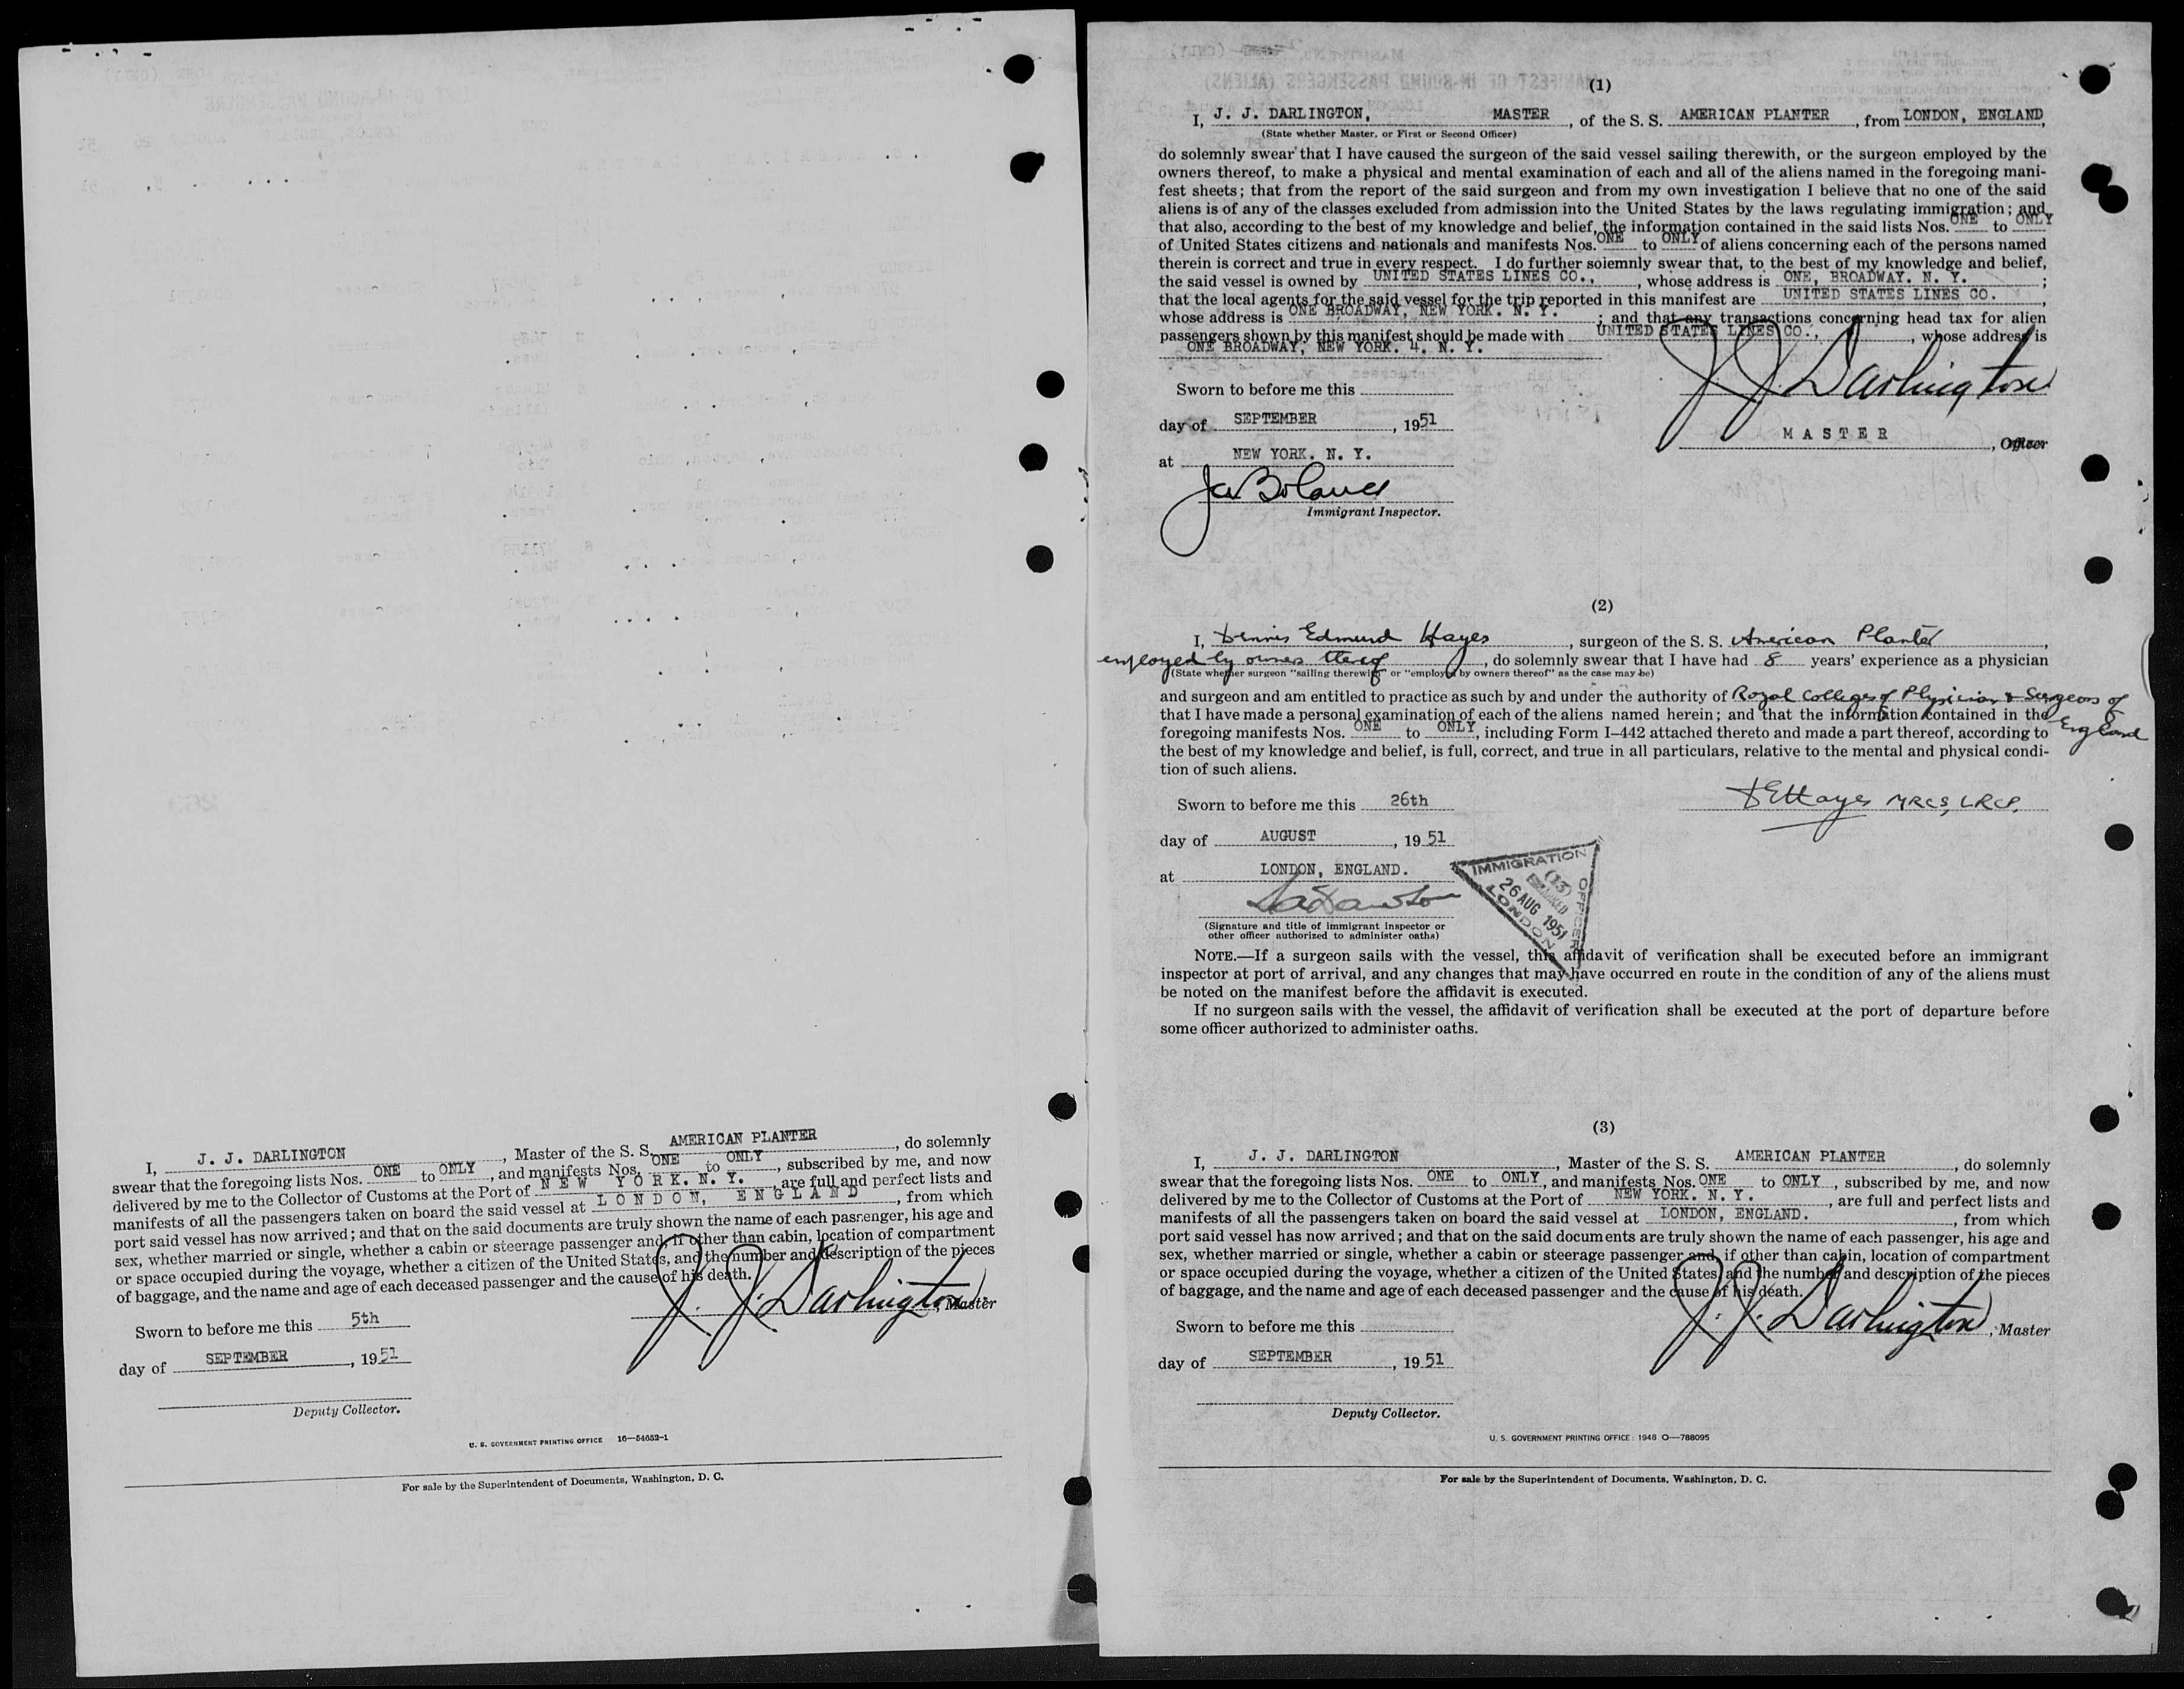 I, J. J. DARLINGTON, Master of the S. S. AMERICAN PLANTER, do solemnly
swear that the foregoing lists Nos. ONE to ONLY, and manifests Nos. ONE to ONLY, subscribed by me, and now
delivered by me to the Collector of Customs at the Port of NEW YORK. N. Y., are full and perfect lists and
manifests of all the passengers taken on board the said vessel at LONDON, ENGLAND, from which
port said vessel has now arrived; and that on the said documents are truly shown the name of each passenger, his age and
sex, whether married or single, whether a cabin or steerage passenger and, if other than cabin, location of compartment
or space occupied during the voyage, whether a citizen of the United States, and the number and description of the pieces
of baggage, and the name and age of each deceased passenger and the cause of his death.
J. J. Darlington, Master
Sworn to before me this 5th
day of SEPTEMBER, 1951
Deputy Collector.
U. S. GOVERNMENT PRINTING OFFICE 16—54652-1
For sale by the Superintendent of Documents, Washington, D. C.
(1)
I, J. J. DARLINGTON, MASTER, of the S. S. AMERICAN PLANTER, from LONDON, ENGLAND,
(State whether Master, or First or Second Officer)
do solemnly swear that I have caused the surgeon of the said vessel sailing therewith, or the surgeon employed by the
owners thereof, to make a physical and mental examination of each and all of the aliens named in the foregoing mani-
fest sheets; that from the report of the said surgeon and from my own investigation I believe that no one of the said
aliens is of any of the classes excluded from admission into the United States by the laws regulating immigration; and
that also, according to the best of my knowledge and belief, the information contained in the said lists Nos. ONE to ONLY
of United States citizens and nationals and manifests Nos. ONE to ONLY of aliens concerning each of the persons named
therein is correct and true in every respect. I do further solemnly swear that, to the best of my knowledge and belief,
the said vessel is owned by UNITED STATES LINES CO., whose address is ONE, BROADWAY. N. Y.;
that the local agents for the said vessel for the trip reported in this manifest are UNITED STATES LINES CO.,
whose address is ONE BROADWAY, NEW YORK. N. Y.; and that any transactions concerning head tax for alien
passengers shown by this manifest should be made with UNITED STATES LINES CO., whose address is
ONE BROADWAY, NEW YORK. 4. N. Y.
Sworn to before me this
J. J. Darlington
day of SEPTEMBER, 1951
MASTER, Officer
at NEW YORK. N. Y.
Immigrant Inspector.
(2)
I, Dennis Edmund Hayes, surgeon of the S. S. American Planter,
employed by owners thereof, do solemnly swear that I have had 8 years' experience as a physician
(State whether surgeon "sailing therewith" or "employed by owners thereof" as the case may be)
and surgeon and am entitled to practice as such by and under the authority of Royal Colleges of Physicians & Surgeons of England
that I have made a personal examination of each of the aliens named herein; and that the information contained in the
foregoing manifests Nos. ONE to ONLY, including Form I–442 attached thereto and made a part thereof, according to
the best of my knowledge and belief, is full, correct, and true in all particulars, relative to the mental and physical condi-
tion of such aliens.
Sworn to before me this 26th
DEHayes MRCS, LRCP.
day of AUGUST, 1951
at LONDON, ENGLAND.
IMMIGRATION OFFICER
(13)
26 AUG 1951
LONDON
(Signature and title of immigrant inspector or
other officer authorized to administer oaths)
NOTE.—If a surgeon sails with the vessel, this affidavit of verification shall be executed before an immigrant
inspector at port of arrival, and any changes that may have occurred en route in the condition of any of the aliens must
be noted on the manifest before the affidavit is executed.
If no surgeon sails with the vessel, the affidavit of verification shall be executed at the port of departure before
some officer authorized to administer oaths.
(3)
I, J. J. DARLINGTON, Master of the S. S. AMERICAN PLANTER, do solemnly
swear that the foregoing lists Nos. ONE to ONLY, and manifests Nos. ONE to ONLY, subscribed by me, and now
delivered by me to the Collector of Customs at the Port of NEW YORK. N. Y., are full and perfect lists and
manifests of all the passengers taken on board the said vessel at LONDON, ENGLAND., from which
port said vessel has now arrived; and that on the said documents are truly shown the name of each passenger, his age and
sex, whether married or single, whether a cabin or steerage passenger and, if other than cabin, location of compartment
or space occupied during the voyage, whether a citizen of the United States, and the number and description of the pieces
of baggage, and the name and age of each deceased passenger and the cause of his death.
J. J. Darlington, Master
Sworn to before me this
day of SEPTEMBER, 1951
Deputy Collector.
U. S. GOVERNMENT PRINTING OFFICE: 1948 O—788095
For sale by the Superintendent of Documents, Washington, D. C.